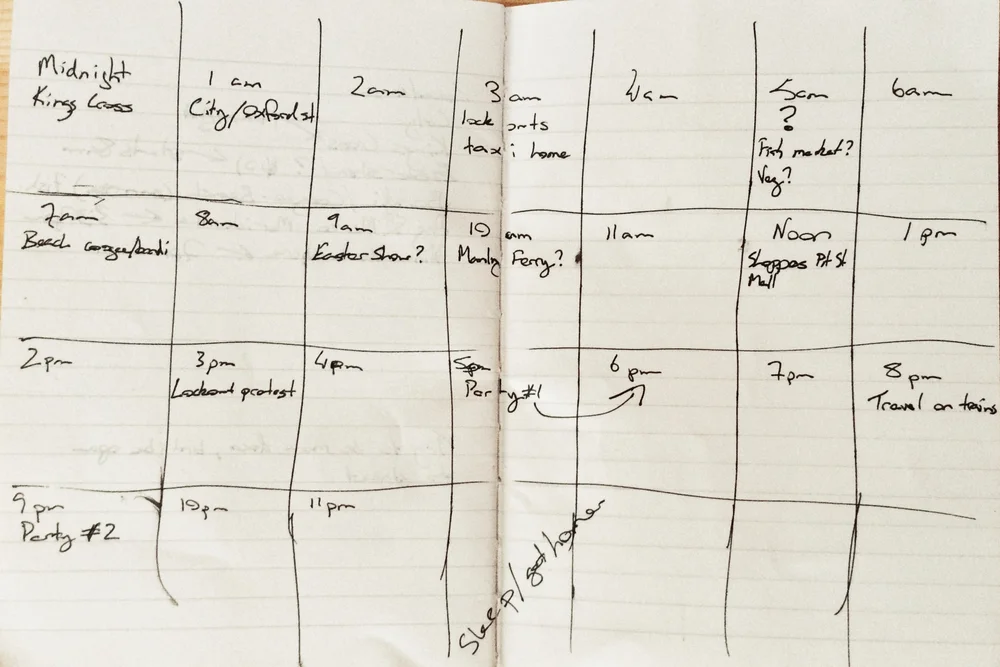 Midnight
Kings Cross
1 am
City/Oxford st
2am
3 am
lock outs
taxi home
4am
5am
?
Fish market?
Veg?
6am
7am
Beach coogee/bondi
8am
9am
Easter Show?
10 am
Manly Ferry?
11am
Noon
Shoppes Pit St
Mall
1 pm
2pm
3pm
Lockout protest
4pm
5pm
Party #1
6 pm
7pm
8 pm
Travel on trains
9pm
Party #2
10pm
11pm
Sleep/ get home